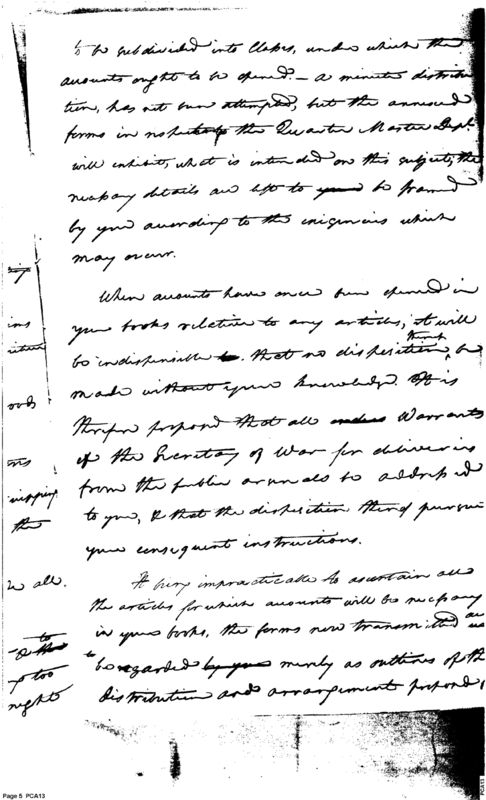 to be subdivided into Classes, under which the
accounts ought to be opened. — a minute distribu
tion, has not been attempted, but the annexed
forms in respect to the Quarter Master Dept.
will exhibit, what is intended on this subject, the
necessary details are left to be framed
by you according to the exigencies which
may occur.
When accounts have once been opened in
your books relative to any articles, it will
be indispensible that no disposition thereof be
made without your knowledge. It is
therefore proposed that all Warrants
of the Secretary of War for deliveries
from the public arsenals be addressed
to you, & that the disposition thereof pursue
your consequent instructions.
It being impracticable to ascertain all
the articles for which accounts will be necessary
in your books, the forms now transmitted are
to be regarded merely as outlines of the
distribution and arrangement proposed,
ools
the
all.
to
too
night
Page 5 PCA13
PCA13